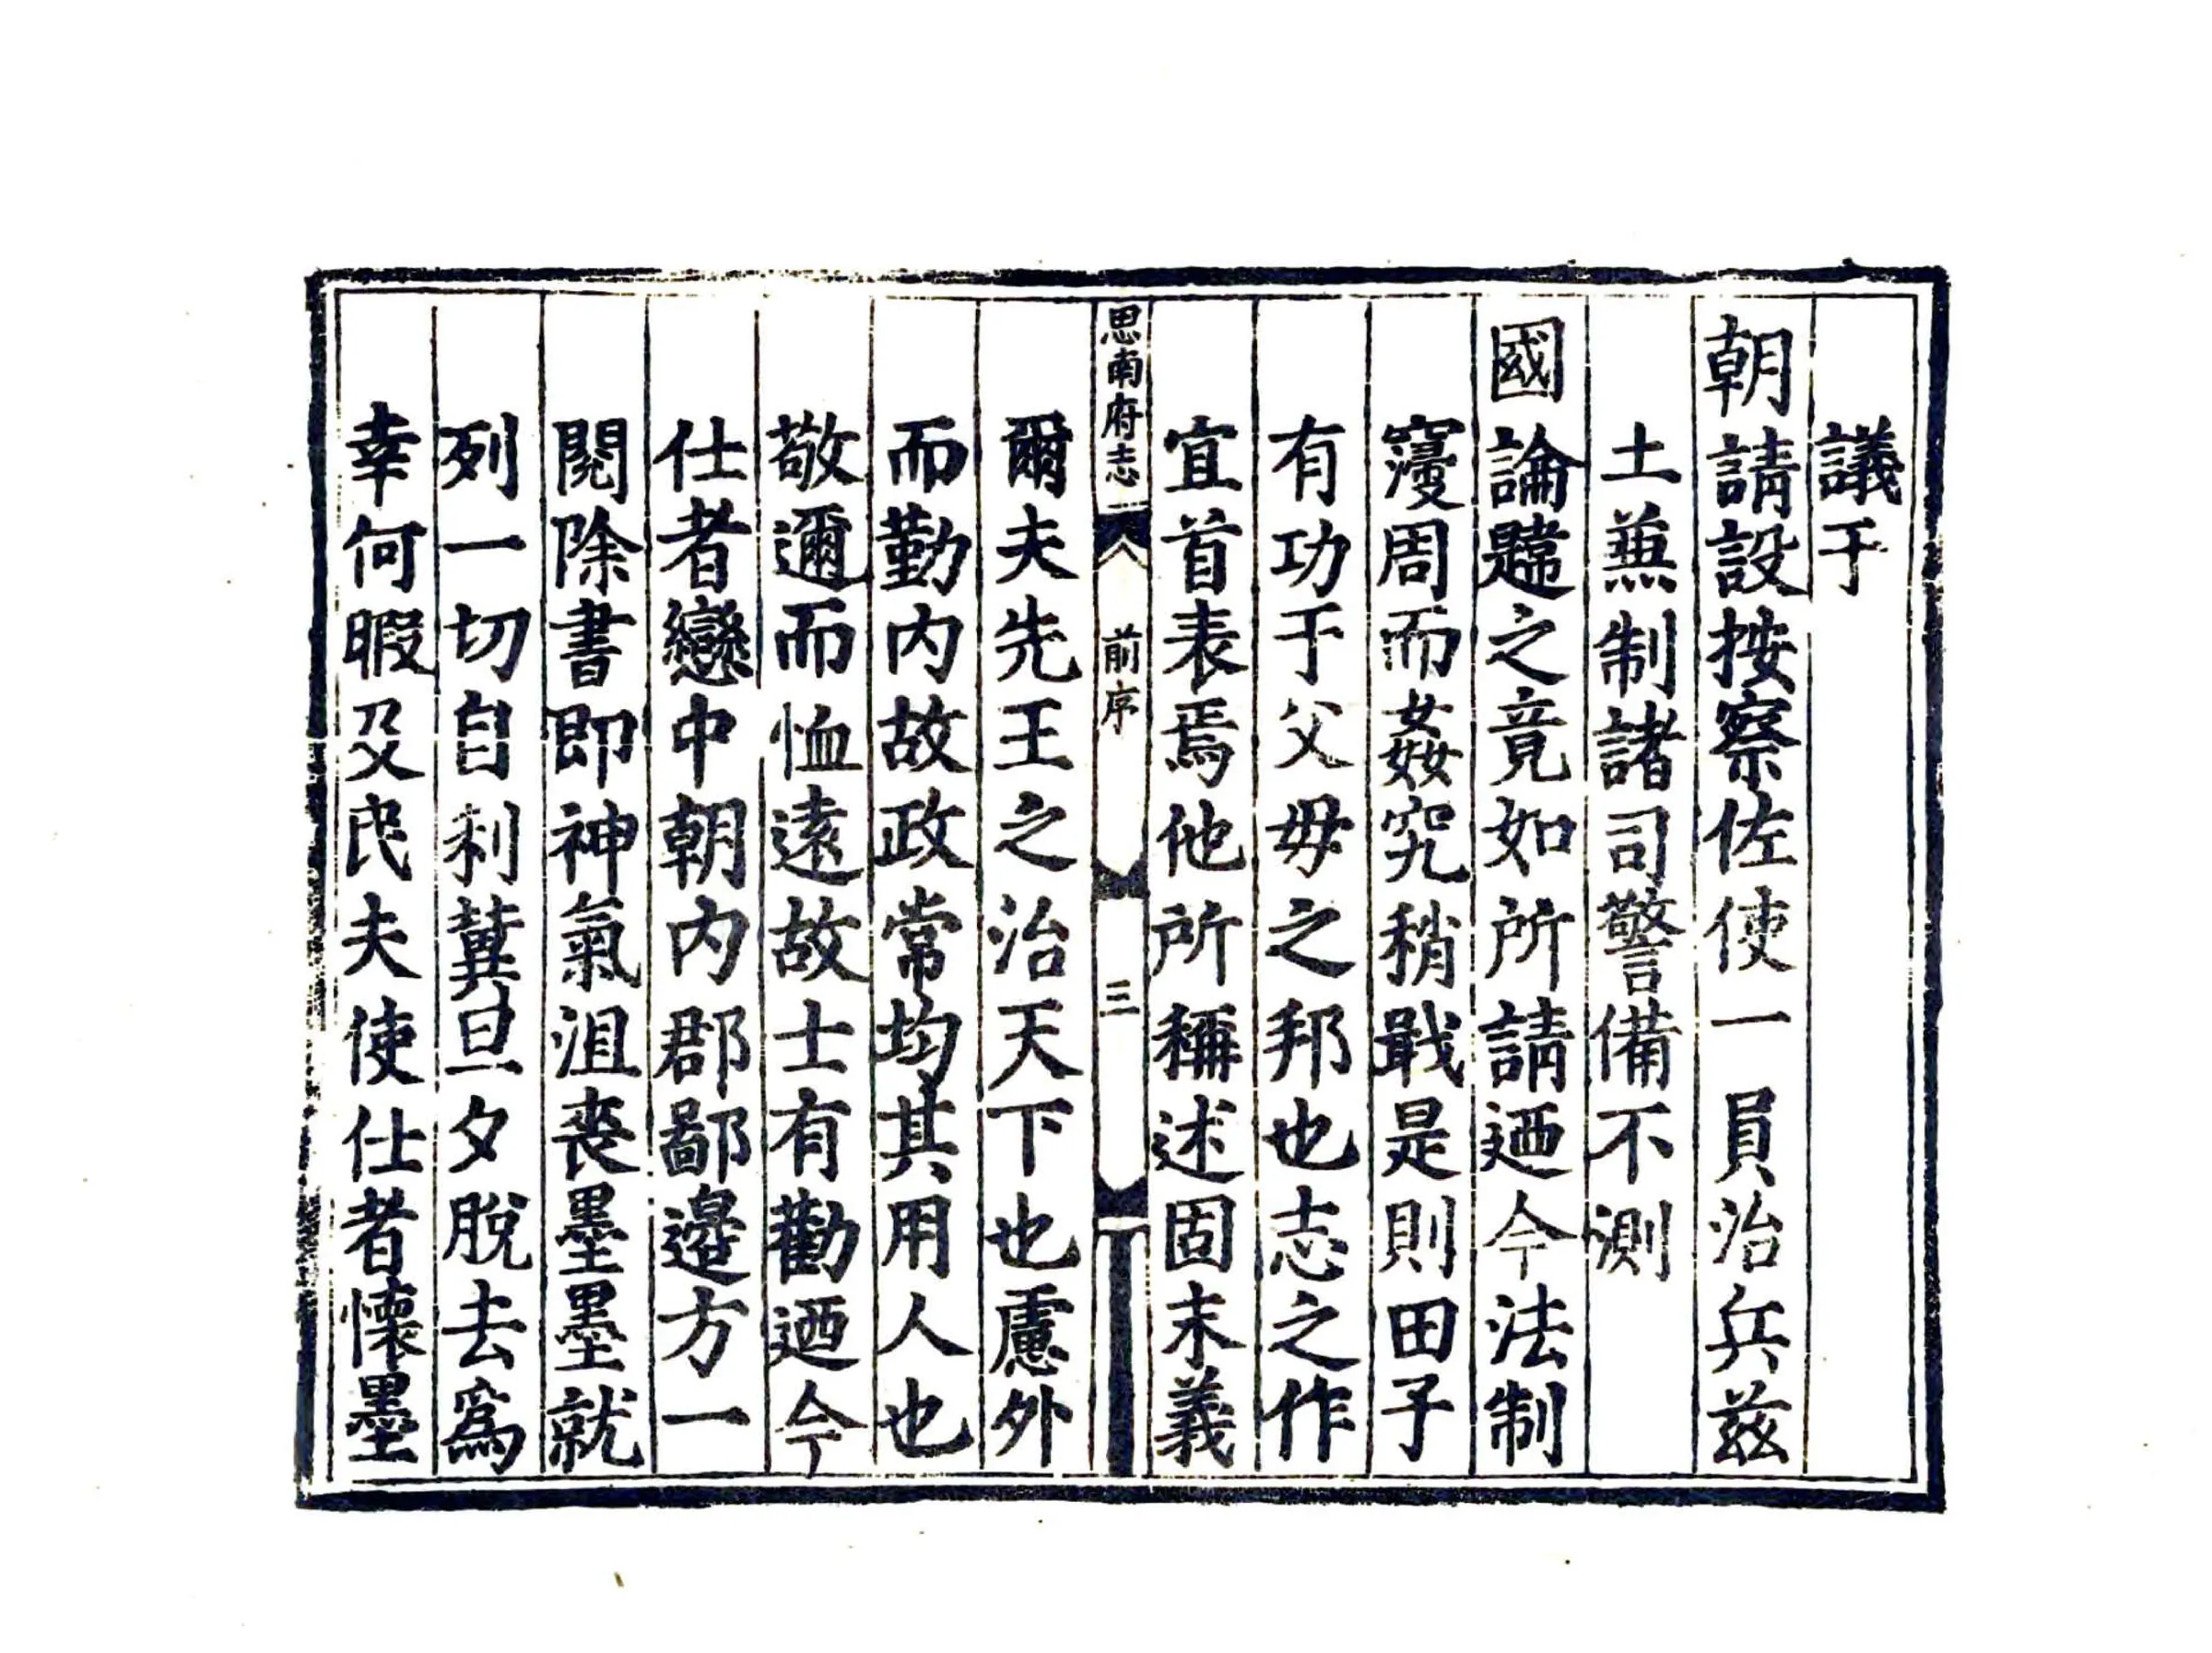 議于
朝請設按察佐使一員治兵茲
土兼制諸司警備不測
國論韙之竟如所請迺今法制
寖周而姦究稍戢是則田子
有功于父毋之邦也志之作
宜首表焉他所稱述固末義
思南府志 前序 三
爾夫先王之治天下也慮外
而勤内故政常均其用人也
敬邇而恤遠故士有勸迺今
仕者戀中朝内郡鄙邊方一
閱除書即神氣沮喪墨墨就
列一切自利冀旦夕脫去爲
幸何暇及民夫使仕者懷墨